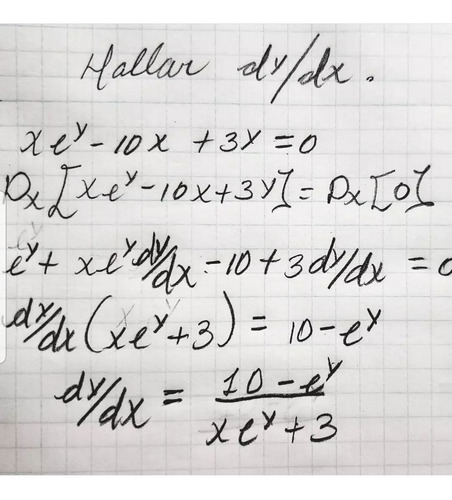 Hallar dy/dx.
xe^y - 10x + 3y = 0
Dx[xe^y - 10x + 3y] = Dx[0]
e^y + xe^y dy/dx - 10 + 3dy/dx = 0
dy/dx (xe^y + 3) = 10 - e^y
dy/dx = \frac{10 - e^y}{xe^y + 3}